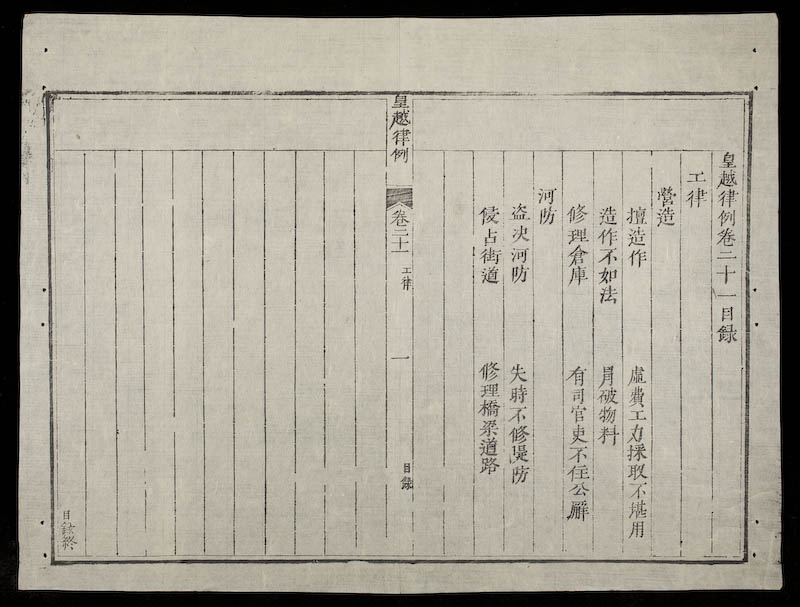 皇越律例卷二十一目錄
工律
營造
擅造作 虛費工力採取不堪用
造作不如法 冐破物料
修理倉庫 有司官吏不住公廨
河防
盗决河防 失時不修堤防
侵占街道 修理橋梁道路
皇越律例 卷二十一 工律 一 目錄
目錄終